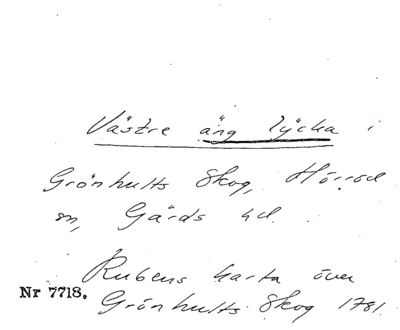 Västre äng lycka i
Grönhults Skog, Hörröd
sn, Gärds hd.
Rubens karta över
Nr 7718. Grönhults Skog 1781.